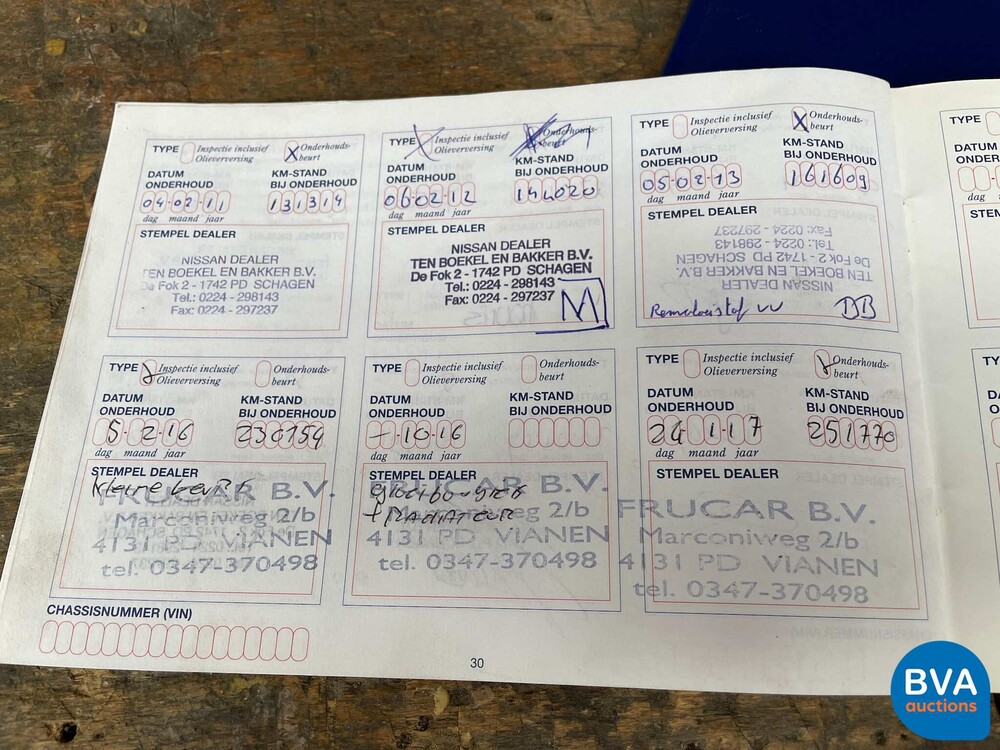 TYPE Inspectie inclusief Olieverversing X Onderhouds-beurt
DATUM ONDERHOUD
KM-STAND BIJ ONDERHOUD
04-02-11
131314
dag maand jaar
STEMPEL DEALER
NISSAN DEALER
TEN BOEKEL EN BAKKER B.V.
De Fok 2 - 1742 PD SCHAGEN
Tel.: 0224 - 298143
Fax: 0224 - 297237
TYPE X Inspectie inclusief Olieverversing Onderhouds-beurt
DATUM ONDERHOUD
KM-STAND BIJ ONDERHOUD
06-02-12
144020
dag maand jaar
STEMPEL DEALER
NISSAN DEALER
TEN BOEKEL EN BAKKER B.V.
De Fok 2 - 1742 PD SCHAGEN
Tel.: 0224 - 298143
Fax: 0224 - 297237
M
TYPE Inspectie inclusief Olieverversing X Onderhouds-beurt
DATUM ONDERHOUD
KM-STAND BIJ ONDERHOUD
05-02-13
161609
dag maand jaar
STEMPEL DEALER
NISSAN DEALER
TEN BOEKEL EN BAKKER B.V.
De Fok 2 - 1742 PD SCHAGEN
Tel.: 0224 - 298143
Fax: 0224 - 297237
Remvloeistof vv BB
TYPE X Inspectie inclusief Olieverversing Onderhouds-beurt
DATUM ONDERHOUD
KM-STAND BIJ ONDERHOUD
5-2-16
230154
dag maand jaar
STEMPEL DEALER
kleine beurt
FRUCAR B.V.
Marconiweg 2/b
4131 PD VIANEN
tel. 0347-370498
TYPE Inspectie inclusief Olieverversing Onderhouds-beurt
DATUM ONDERHOUD
KM-STAND BIJ ONDERHOUD
-10-16
dag maand jaar
STEMPEL DEALER
+ RADIATEUR
FRUCAR B.V.
Marconiweg 2/b
4131 PD VIANEN
tel. 0347-370498
TYPE Inspectie inclusief Olieverversing X Onderhouds-beurt
DATUM ONDERHOUD
KM-STAND BIJ ONDERHOUD
24 1-17
251770
dag maand jaar
STEMPEL DEALER
FRUCAR B.V.
Marconiweg 2/b
4131 PD VIANEN
tel. 0347-370498
CHASSISNUMMER (VIN)
30
BVA
auctions